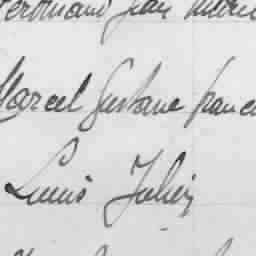 Ferdinand Jean
Marcel Gustave franc
Louis Julien